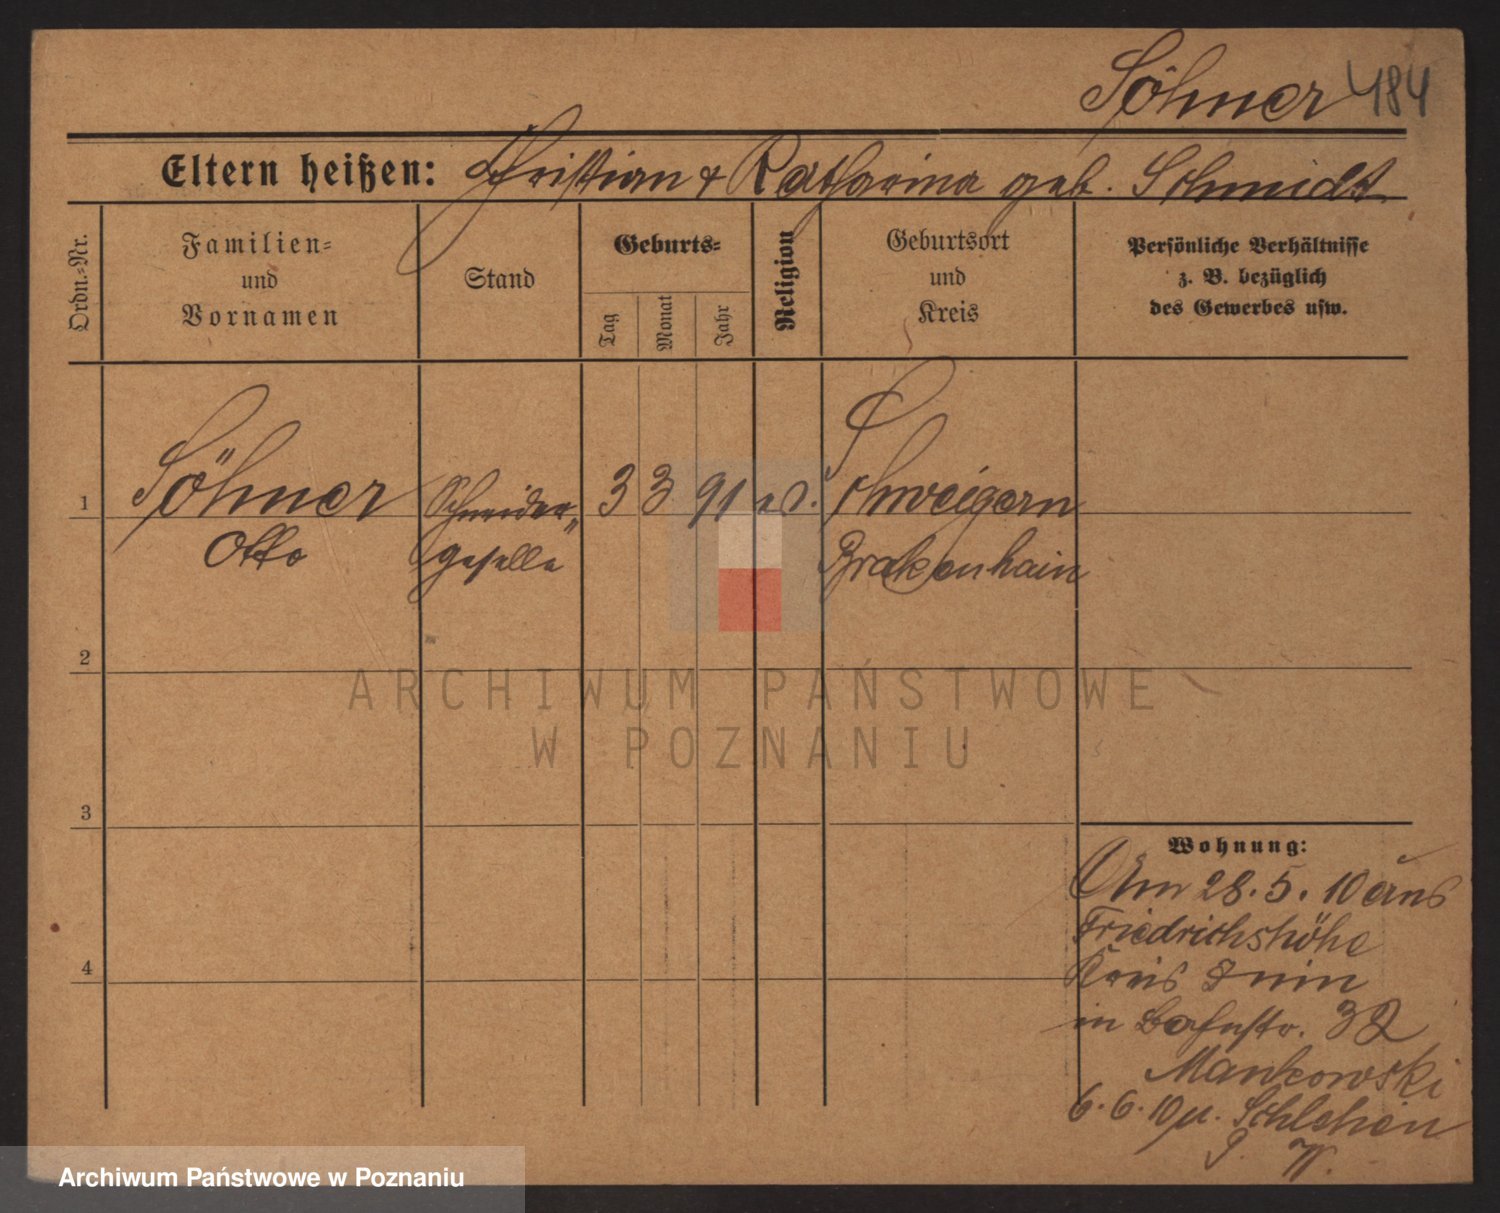 Söhner 484
Eltern heißen: Christian & Katharina geb. Schmidt
Ordn.=Nr.
Familien=
und
Vornamen
Stand
Geburts=
Tag
Monat
Jahr
Religion
Geburtsort
und
Kreis
Persönliche Verhältnisse
z. B. bezüglich
des Gewerbes usw.
1
Söhner
Otto
Schneider„
geselle
3 3 91 ev.
Schweigern
Brakenhain
2
3
4
Wohnung:
Am 28.5.10 aus
Friedrichshöhe
Kreis Znin
in Bahnstr. 32
Mankowski
6.6.10 n. Schlehen
P. W.
ARCHIWUM PAŃSTWOWE
W POZNANIU
Archiwum Państwowe w Poznaniu